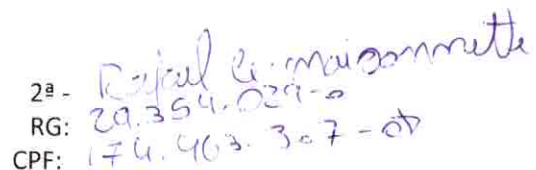 2ª - Rafael G. maisonnette
RG: 29.354.029-0
CPF: 174.463.307-